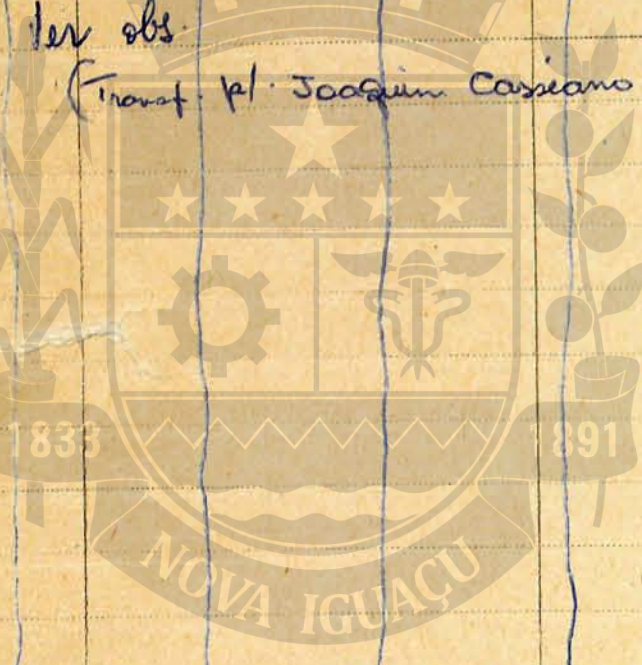 Ver obs.
(Transf. p/. Joaquim Cassiano
1833
1891
NOVA IGUAÇU